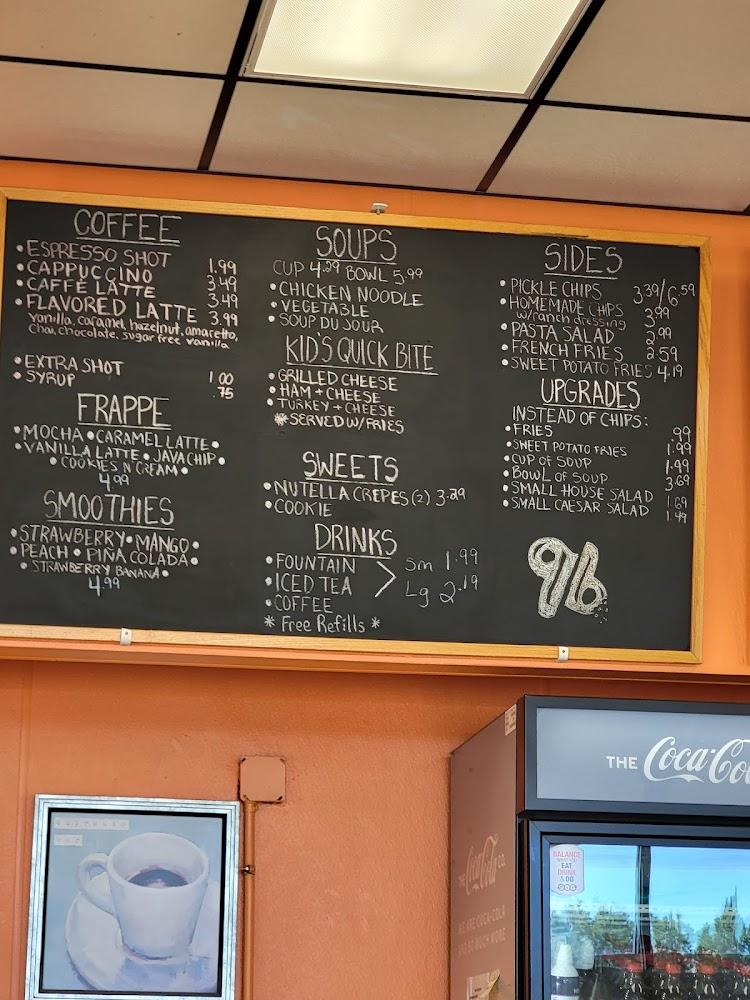 COFFEE
• ESPRESSO SHOT 1.99
• CAPPUCCINO 3.49
• CAFFÉ LATTE 3.49
• FLAVORED LATTE 3.99
vanilla, caramel, hazelnut, amaretto,
chai, chocolate, sugar free vanilla
• EXTRA SHOT 1.00
• SYRUP .75
FRAPPE
• MOCHA • CARAMEL LATTE •
VANILLA LATTE • JAVA CHIP •
• COOKIES N' CREAM •
4.99
SMOOTHIES
• STRAWBERRY • MANGO •
• PEACH • PIÑA COLADA •
• STRAWBERRY BANANA •
4.99
SOUPS
CUP 4.99 BOWL 5.99
• CHICKEN NOODLE
• VEGETABLE
• SOUP DU JOUR
KID'S QUICK BITE
• GRILLED CHEESE
• HAM + CHEESE
• TURKEY + CHEESE
* SERVED W/FRIES
SWEETS
• NUTELLA CREPES (2) 3.29
• COOKIE
DRINKS
• FOUNTAIN
• ICED TEA > Sm 1.99
Lg 2.19
• COFFEE
* Free Refills *
SIDES
• PICKLE CHIPS 3.39/6.59
• HOMEMADE CHIPS 3.99
w/ranch dressing
• PASTA SALAD 2.99
• FRENCH FRIES 2.59
• SWEET POTATO FRIES 4.19
UPGRADES
INSTEAD OF CHIPS:
• FRIES .99
• SWEET POTATO FRIES 1.99
• CUP OF SOUP 1.99
• BOWL OF SOUP 3.69
• SMALL HOUSE SALAD 1.69
• SMALL CAESAR SALAD 1.49
96
THE Coca-Co
BALANCE
WHAT YOU
EAT,
DRINK
& DO
THE Coca-Cola CO.
WE ARE COCA-COLA
AND SO MUCH MORE